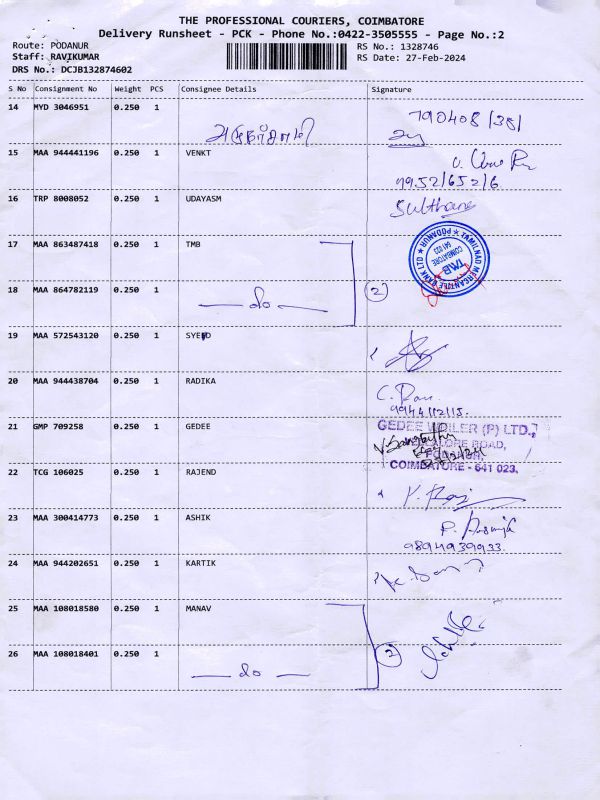 THE PROFESSIONAL COURIERS, COIMBATORE
Delivery Runsheet - PCK - Phone No.:0422-3505555 - Page No.:2
Route: PODANUR
Staff: RAVIKUMAR
DRS No.: DCJB132874602
RS No.: 1328746
RS Date: 27-Feb-2024
S No Consignment No Weight PCS Consignee Details Signature
14 MYD 3046951 0.250 1
15 MAA 944441196 0.250 1 VENKT
9952165216
16 TRP 8008052 0.250 1 UDAYASM Sulthana
17 MAA 863487418 0.250 1 TMB
TAMILNAD MERCANTILE BANK LTD ★ PODANUR ★
TMB
COIMBATORE
641 023
18 MAA 864782119 0.250 1
do 2
19 MAA 572543120 0.250 1 SYEED
20 MAA 944438704 0.250 1 RADIKA
21 GMP 709258 0.250 1 GEDEE
GEDEE WEILER (P) LTD.,
ROAD,
COIMBATORE - 641 023.
22 TCG 106025 0.250 1 RAJEND
23 MAA 300414773 0.250 1 ASHIK
9894939933
24 MAA 944202651 0.250 1 KARTIK
25 MAA 108018580 0.250 1 MANAV
26 MAA 108018401 0.250 1
do 2